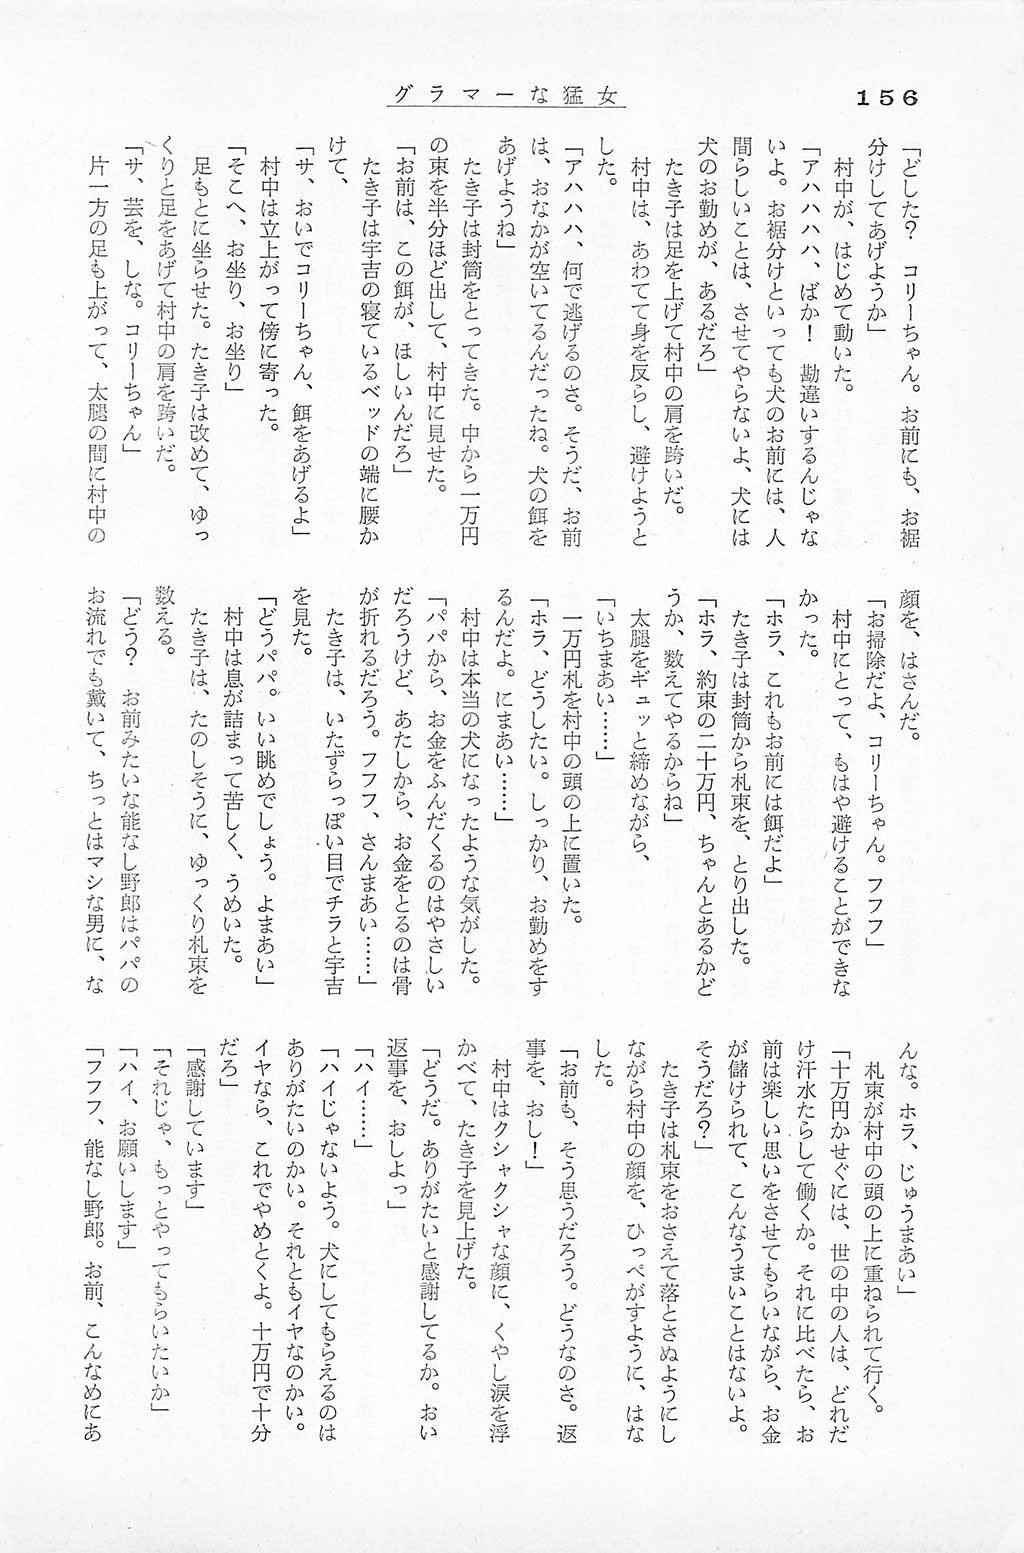 156
グラマーな猛女
「どした？　コリーちゃん。お前にも、お裾
分けしてあげようか」
　村中が、はじめて動いた。
「アハハハハ、ばか！　勘違いするんじゃな
いよ。お裾分けといっても犬のお前には、人
間らしいことは、させてやらないよ、犬には
犬のお勤めが、あるだろ」
　たき子は足を上げて村中の肩を跨いだ。
　村中は、あわてて身を反らし、避けようと
した。
「アハハハ、何で逃げるのさ。そうだ、お前
は、おなかが空いてるんだったね。犬の餌を
あげようね」
　たき子は封筒をとってきた。中から一万円
の束を半分ほど出して、村中に見せた。
「お前は、この餌が、ほしいんだろ」
　たき子は宇吉の寝ているベッドの端に腰か
けて、
「サ、おいでコリーちゃん、餌をあげるよ」
　村中は立上がって傍に寄った。
「そこへ、お坐り、お坐り」
　足もとに坐らせた。たき子は改めて、ゆっ
くりと足をあげて村中の肩を跨いだ。
「サ、芸を、しな。コリーちゃん」
　片一方の足も上がって、太腿の間に村中の
顔を、はさんだ。
「お掃除だよ、コリーちゃん。フフフ」
　村中にとって、もはや避けることができな
かった。
「ホラ、これもお前には餌だよ」
　たき子は封筒から札束を、とり出した。
「ホラ、約束の二十万円、ちゃんとあるかど
うか、数えてやるからね」
　太腿をギュッと締めながら、
「いちまあい……」
　一万円札を村中の頭の上に置いた。
「ホラ、どうしたい。しっかり、お勤めをす
るんだよ。にまあい……」
　村中は本当の犬になったような気がした。
「パパから、お金をふんだくるのはやさしい
だろうけど、あたしから、お金をとるのは骨
が折れるだろう。フフフ、さんまあい……」
　たき子は、いたずらっぽい目でチラと宇吉
を見た。
「どうパパ。いい眺めでしょう。よまあい」
　村中は息が詰まって苦しく、うめいた。
　たき子は、たのしそうに、ゆっくり札束を
数える。
「どう？　お前みたいな能なし野郎はパパの
お流れでも戴いて、ちっとはマシな男に、な
んな。ホラ、じゅうまあい」
　札束が村中の頭の上に重ねられて行く。
「十万円かせぐには、世の中の人は、どれだ
け汗水たらして働くか。それに比べたら、お
前は楽しい思いをさせてもらいながら、お金
が儲けられて、こんなうまいことはないよ。
そうだろ？」
　たき子は札束をおさえて落とさぬようにし
ながら村中の顔を、ひっぺがすように、はな
した。
「お前も、そう思うだろう。どうなのさ。返
事を、おし！」
　村中はクシャクシャな顔に、くやし涙を浮
かべて、たき子を見上げた。
「どうだ。ありがたいと感謝してるか。おい
返事を、おしよっ」
「ハイ……」
「ハイじゃないよう。犬にしてもらえるのは
ありがたいのかい。それともイヤなのかい。
イヤなら、これでやめとくよ。十万円で十分
だろ」
「感謝しています」
「それじゃ、もっとやってもらいたいか」
「ハイ、お願いします」
「フフフ、能なし野郎。お前、こんなめにあ